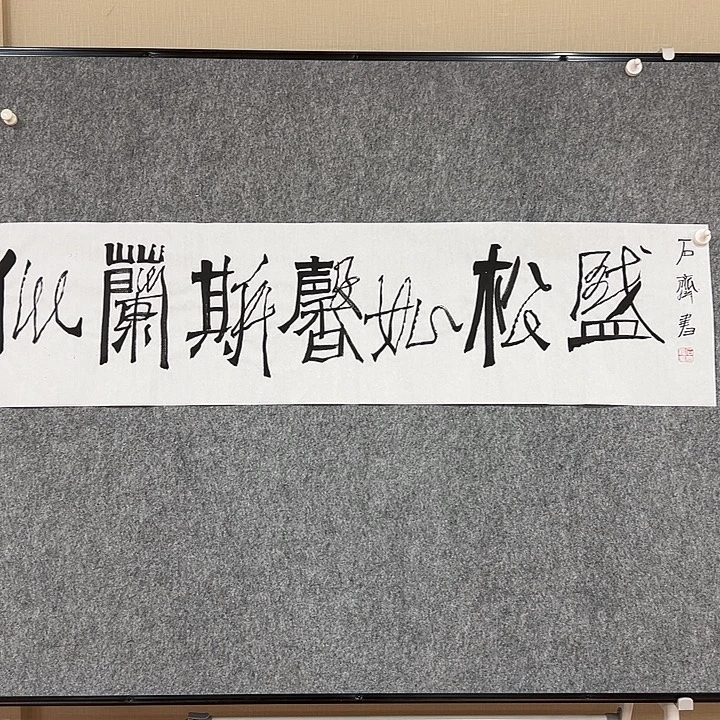 似蘭斯馨如松盛
石齋書